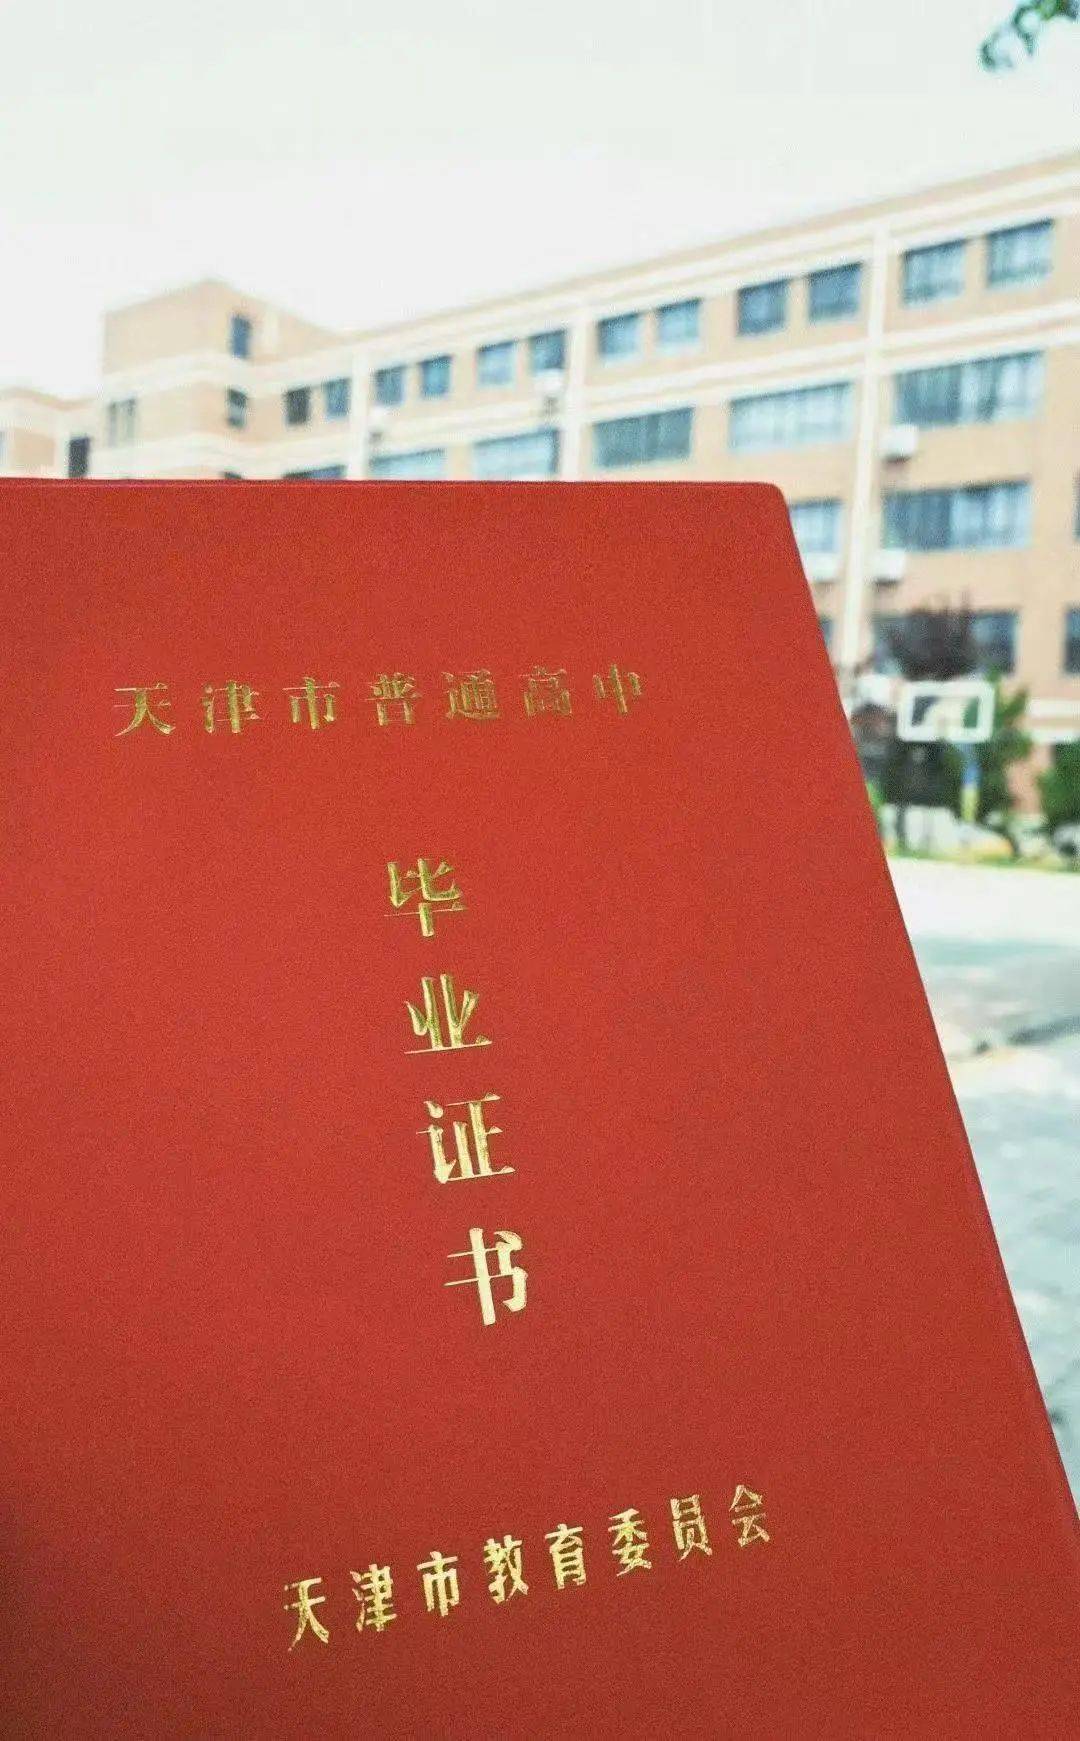 天津市普通高中
毕业证书
天津市教育委员会